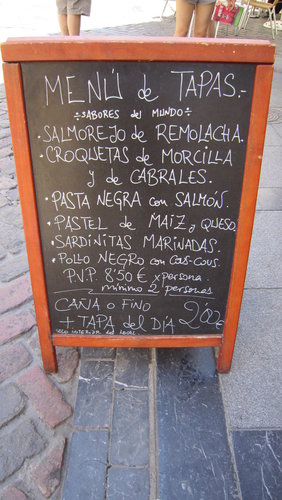 MENÚ de TAPAS.-
÷SABORES del MUNDO÷
·SALMOREJO de REMOLACHA.
·CROQUETAS de MORCILLA
y de CABRALES.
·PASTA NEGRA con SALMÓN.
·PASTEL de MAIZ y QUESO.
·SARDINITAS MARINADAS.
·POLLO NEGRO con COUS-COUS.
P.V.P. 8'50 € x persona.
mínimo 2 personas
CAÑA O FINO
+ TAPA del DÍA 2'00€
SOLO INTERIOR del LOCAL